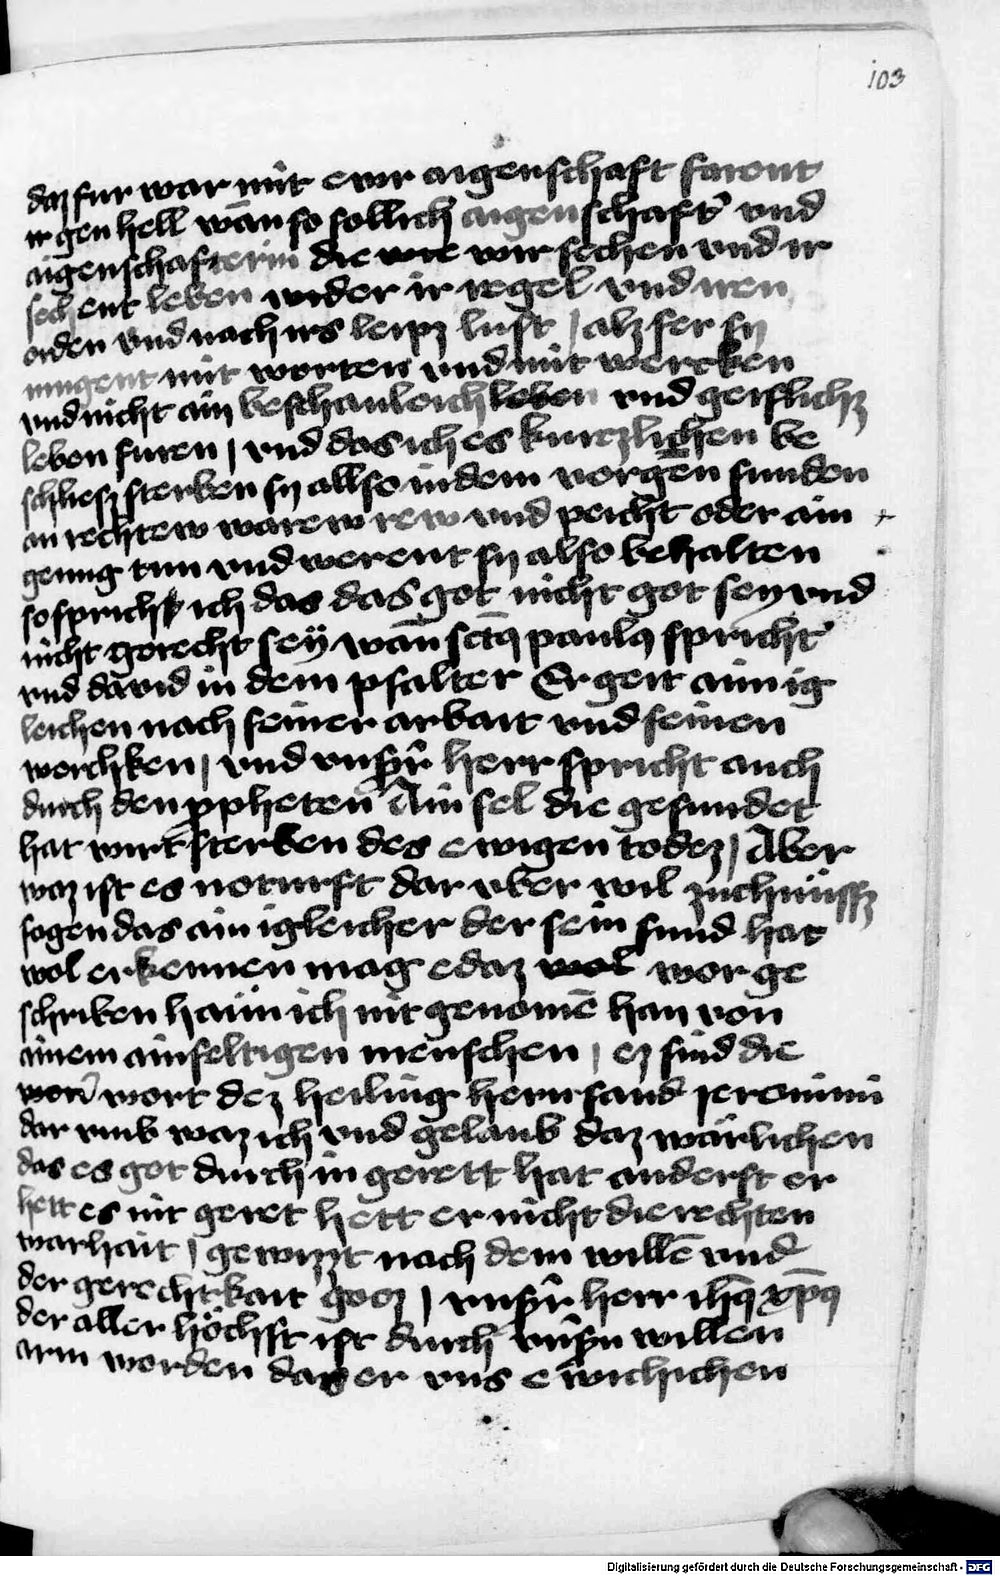 103
daz fur war mit ewr aigenschaft farent
ir gen hell wān so sollich aigenschaft' vnd
aigenschafterin die wie wir sechen vnd ir
sechent leben wider ir regel vnd iren
orden vnd nach irs leipz lust / alz fer sy
mugent mit worten vnd mit wercken
vnd nicht ain beschauleich leben vnd geistlichz
leben furen / vnd das ich es kurczlichen be
schliesz sterben sy allso in dem vorgen sunden
an rechtew warew rew vnd peicht oder ain
genug tun vnd werent sy also behalten
so sprich ich das das got nicht got sey vnd
nicht gerecht sey wān sctq paulq spricht
vnd dauid in dem psalter Er geit aim ig
leichen nach seiner arbait vnd seinen
werchken / vnd vnsr herr spricht auch
durch den ppheten Ain sel die gesundet
hat wirt sterben des ewigen todez / Aber
waz ist es noturft dar vber wil zuchmüssz
sogen das ain igleicher der sein sund hat
wol erkennen mag e daz wol vor ge
schriben haim ich nit genomē han von
ainem ainfeltigen menschen / ez sind die
wort dez heiling herrn sand Jeronimi
dar vmb waz ich vnd gelaub daz wärlichen
das es got durch in gerett hat anderst er
hett es nit geret hett er nicht die rechten
warhait / gewizzt nach dem willē vnd
der gerechtkait gocz / vnsr herr ihq xpq
der aller höchst ist durch vnsn willen
arm worden das er vns ewichichen
Digitalisierung gefördert durch die Deutsche Forschungsgemeinschaft - DFG